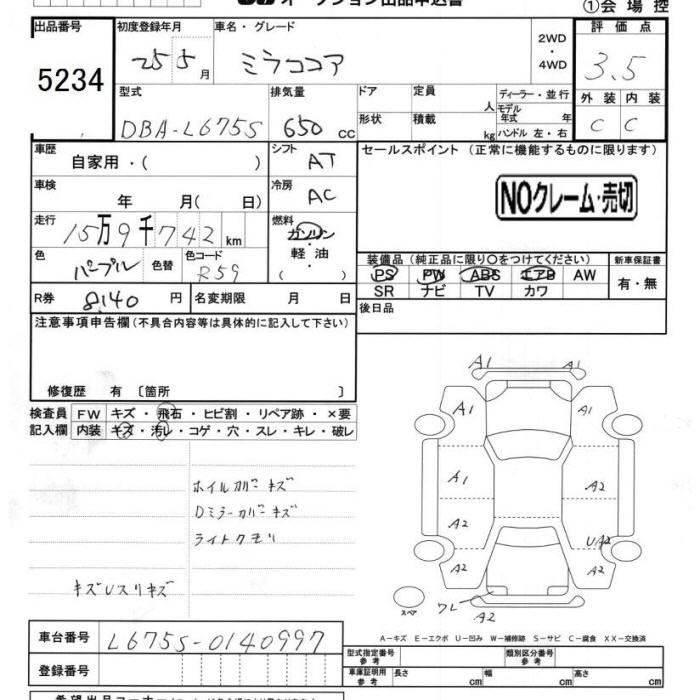 オークション出品申込書
①会場控
出品番号 初度登録年月 車名・グレード 評価点
5234 25 5月 ミラココア 2WD・4WD 3.5
型式 排気量 ドア 定員 人 ディーラー・並行 外装 内装
DBA-L675S 650cc 形状 積載 kg モデル年式 年 ハンドル 左・右 C C
車歴 シフト セールスポイント (正常に機能するものに限ります)
自家用・( ) AT
車検 冷房 NOクレーム・売切
年 月( 日) AC
走行 燃料
15万9千742km ガソリン・軽油・( )
色 色替 色コード 装備品(純正品に限り○をつけてください) 新車保証書
パープル R59 PS PW ABS エアB AW 有・無
SR ナビ TV カワ
R券 8,140円 名変期限 月 日 後日品
注意事項申告欄(不具合内容等は具体的に記入して下さい)
修復歴 有 〔箇所 〕
検査員 FW キズ・飛石・ヒビ割・リペア跡・×要
記入欄 内装 キズ・汚レ・コゲ・穴・スレ・キレ・破レ
ホイルカバーキズ
Dミラーカバーキズ
ライトクモリ
キズUスリキズ
A1 A1
A1 A1
A1 A2
A2 UA2
A2 A2
スペア ワレ A2
A-キズ E-エクボ U-凹み W-補修跡 S-サビ C-腐食 XX-交換済
車台番号 L675S-0140997
登録番号
型式指定番号 参考 類別区分番号 参考
車庫証明用 参考 長さ cm 幅 cm 高さ cm